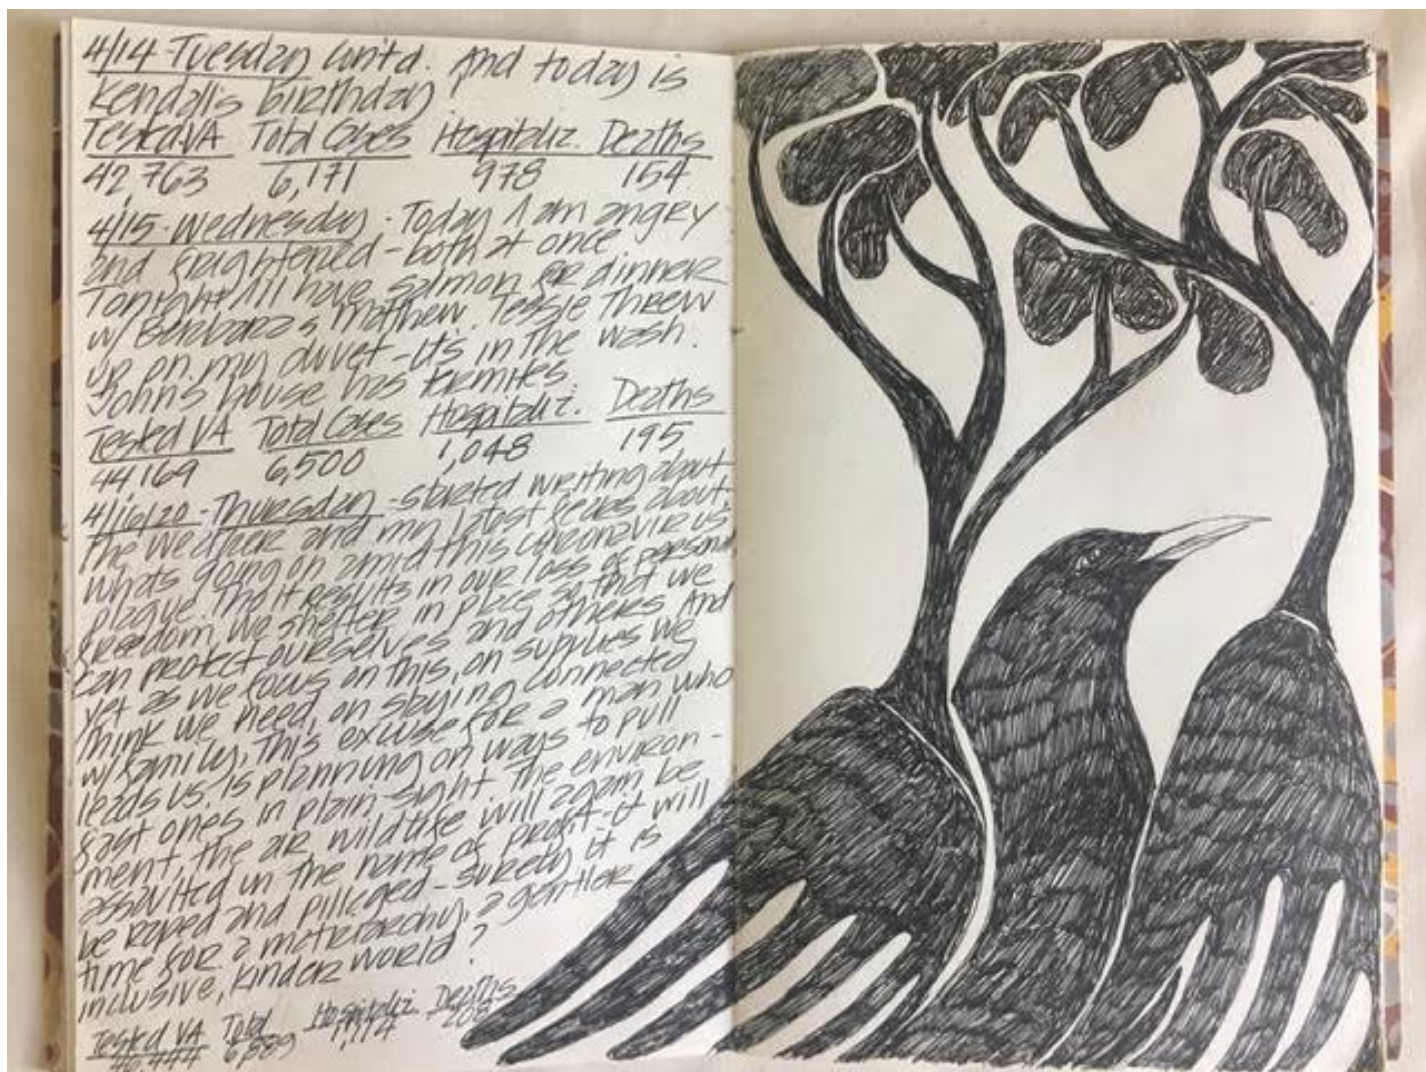 4/14-Tuesday cont'd. And today is
Kendall's birthday
Tested VA Total Cases Hospitaliz. Deaths
42,763 6,171 978 154
4/15-Wednesday - Today I am angry
and frightened - both at once
Tonight I'll have salmon for dinner
w/ Barbara & Mathew. Tessie threw
up on my duvet - it's in the wash.
John's house has termites.
Tested VA Total Cases Hospitaliz. Deaths
44169 6,500 1,048 195
4/16/20 - Thursday - started writing about
the weather and my latest series about
whats going on amid this coronavirus
plague. That results in our loss of personal
freedom, we shelter in place so that we
can protect ourselves and others And
yet as we focus on this, on supplies we
think we need, on staying connected
w/ family, this excuse for a man who
leads us. is planning on ways to pull
fast ones in plain sight The environ-
ment, the air wildlife will again be
assaulted in the name of profit - it will
be raped and pilleged - surely it is
time for a matriarchy, a gentler
inclusive, kinder world?
Tested VA Total Hospitaliz. Deaths
6,889 208